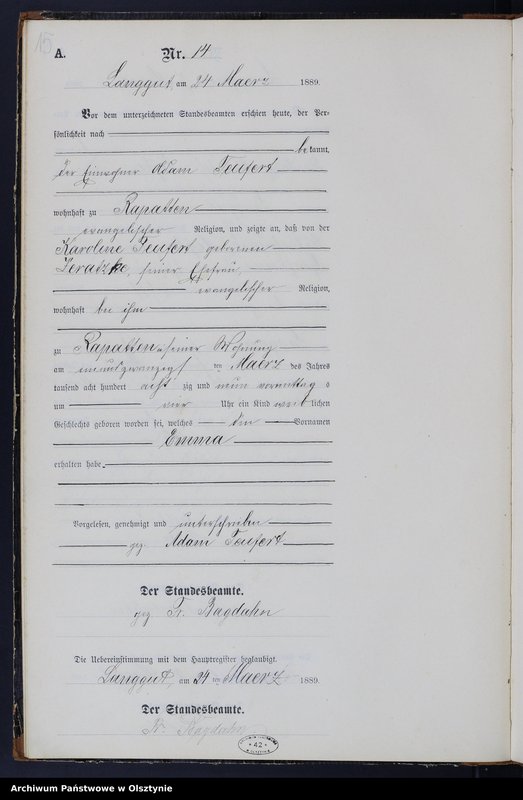 15
A.
Nr. 14
Langgut am 24 Maerz 1889.
Vor dem unterzeichneten Standesbeamten erschien heute, der Per-
sönlichkeit nach
bekannt,
der Einwohner Adam Teufert
wohnhaft zu Rapatten
evangelischer Religion, und zeigte an, daß von der
Karoline Teufert geborenen
seiner Ehefrau,
evangelischer Religion,
wohnhaft bei ihm
zu Rapatten in seiner Wohnung
am ten Maerz des Jahres
tausend acht hundert acht zig und neun vormittag s
um vier Uhr ein Kind weiblichen
Geschlechts geboren worden sei, welches den Vornamen
Emma
erhalten habe.
Vorgelesen, genehmigt und unterschrieben
gez. Adam Teufert
Der Standesbeamte.
gez Fr. Bagduhn
Die Uebereinstimmung mit dem Hauptregister beglaubigt.
Langgut, am 24 ten Maerz 1889.
Der Standesbeamte.
Fr. Bagduhn
42
Archiwum Państwowe w Olsztynie